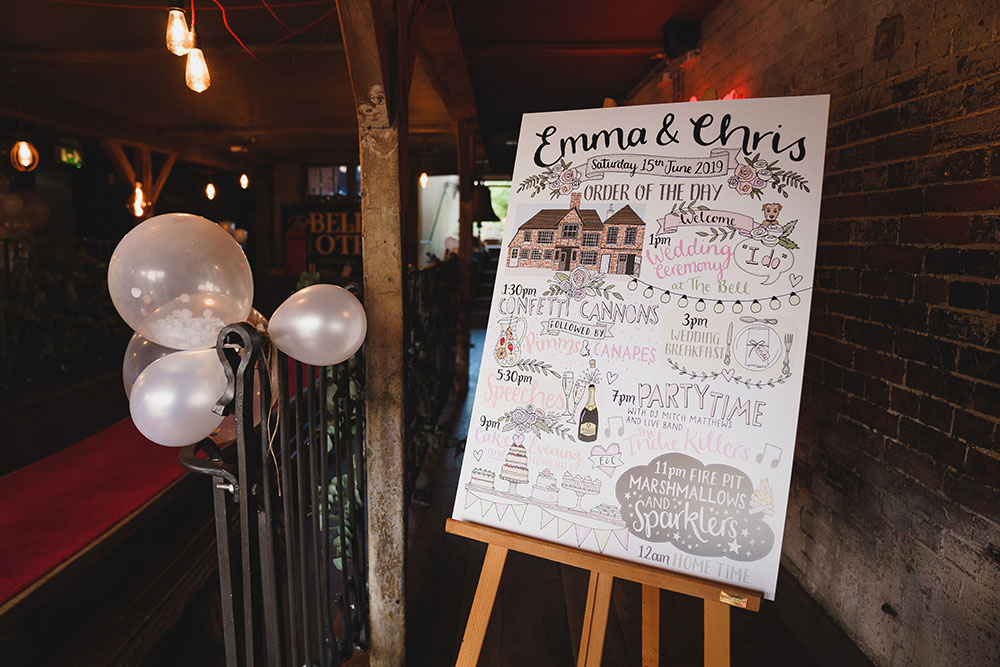 Emma & Chris
Saturday 15th June 2019
ORDER OF THE DAY
Welcome
1pm
Wedding
Ceremony
at The Bell
"I do"
1:30pm
CONFETTI CANNONS
FOLLOWED BY
Pimms & CANAPES
3pm
WEDDING
BREAKFAST
5:30pm
Speeches
7pm PARTY TIME
WITH DJ MITCH MATTHEWS
AND LIVE BAND
The
Indie Killers
9pm
Cake
and Evening
E&C
11pm FIRE PIT
MARSHMALLOWS
AND
Sparklers
12am HOME TIME
BELL